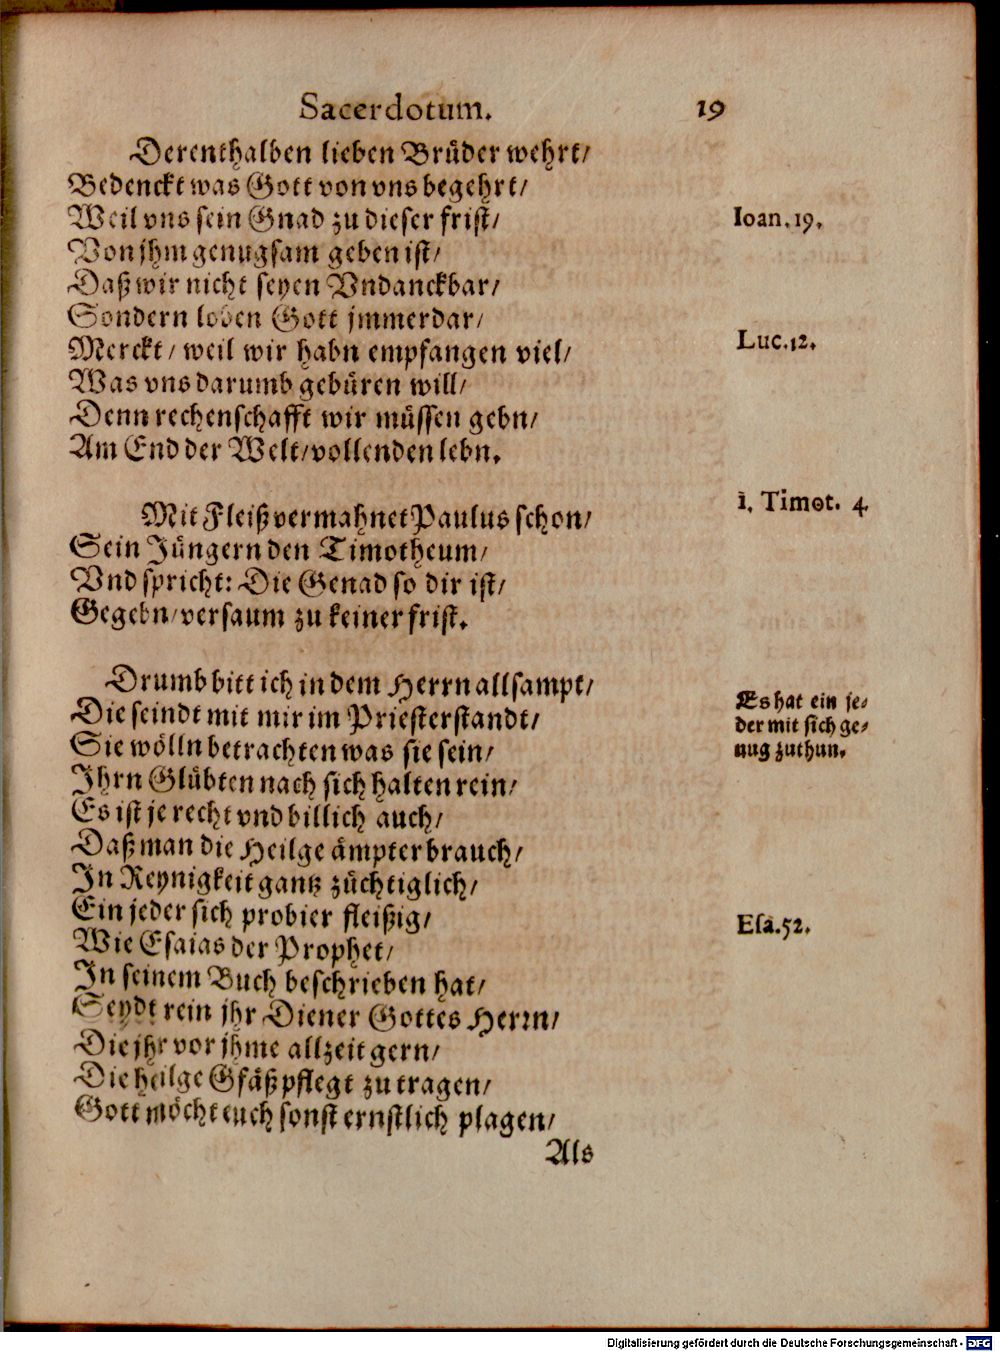 Sacerdotum. 19
Derenthalben lieben Brüder wehrt/
Bedenckt was Gott von vns begehrt/
Weil vns sein Gnad zu dieser frist/
Ioan. 19.
Von jhm genugsam geben ist/
Daß wir nicht seyen Vndanckbar/
Sondern loben Gott jmmerdar/
Merckt/ weil wir habn empfangen viel/
Luc. 12.
Was vns darumb gebüren will/
Denn rechenschafft wir müssen gebn/
Am End der Welt/ vollenden lebn.
Mit Fleiß vermahnet Paulus schon/
1. Timot. 4.
Sein Jüngern den Timotheum/
Vnd spricht: Die Genad so dir ist/
Gegebn/ versaum zu keiner frist.
Drumb bitt ich in dem Herrn allsampt/
Die seindt mit mir im Priesterstandt/
Es hat ein je-
der mit sich ge-
nug zuthun.
Sie wölln betrachten was sie sein/
Ihrn Glübten nach sich halten rein/
Es ist je recht vnd billich auch/
Daß man die Heilge ämpter brauch/
In Reynigkeit gantz züchtiglich/
Ein jeder sich probier fleißig/
Esa. 52.
Wie Esaias der Prophet/
In seinem Buch beschrieben hat/
Seydt rein jhr Diener Gottes Herrn/
Die jhr vor jhme allzeit gern/
Die heilge Gfäß pflegt zu tragen/
Gott möcht euch sonst ernstlich plagen/
Als
Digitalisierung gefördert durch die Deutsche Forschungsgemeinschaft - DFG